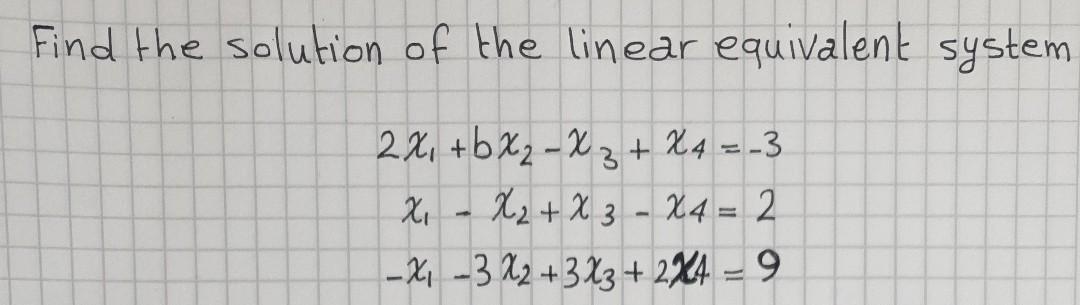 Find the solution of the linear equivalent system
2x₁ + bx₂ - x₃ + x₄ = -3
x₁ - x₂ + x₃ - x₄ = 2
-x₁ - 3x₂ + 3x₃ + 2x₄ = 9